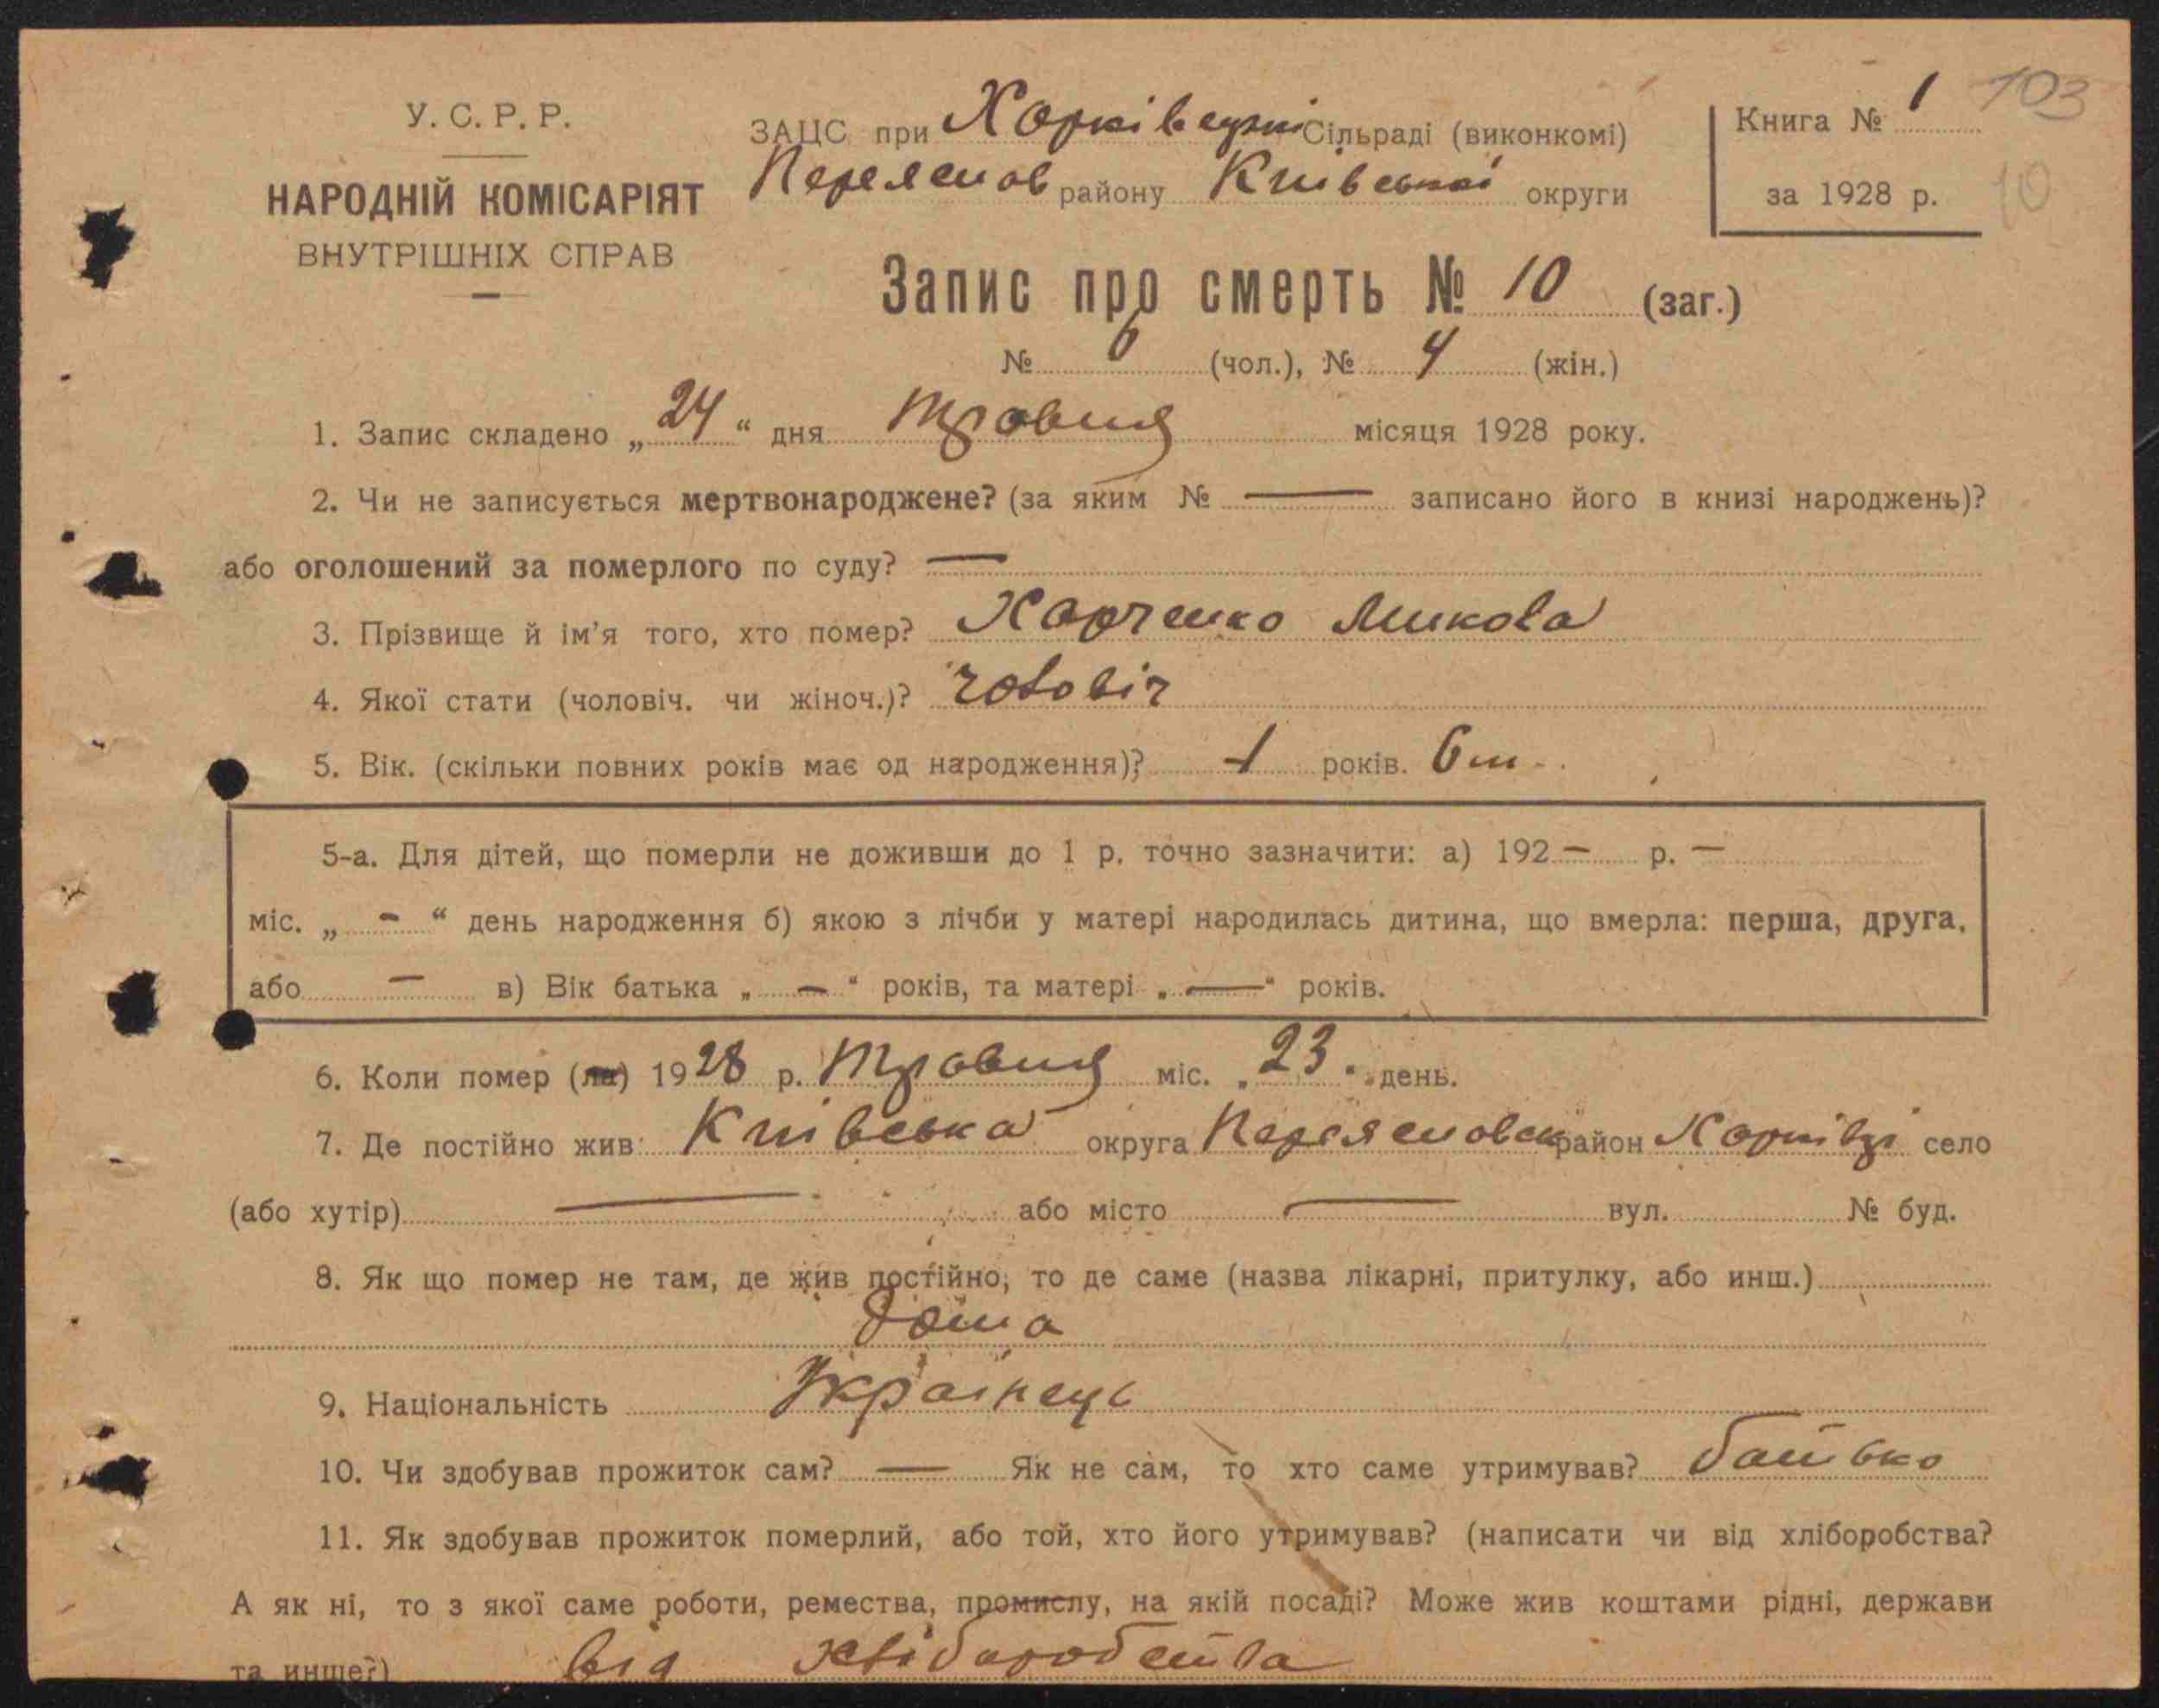 У. С. Р. Р.
НАРОДНІЙ КОМІСАРІЯТ
ВНУТРІШНІХ СПРАВ
ЗАЦС при Харківецькі Сільраді (виконкомі)
Переяслов району Київської округи
Книга № 1 103
за 1928 р. 10
Запис про смерть № 10 (заг.)
№ 6 (чол.), № 4 (жін.)
1. Запис складено „24“ дня Травня місяця 1928 року.
2. Чи не записується мертвонароджене? (за яким № — записано його в книзі народжень)?
або оголошений за померлого по суду? —
3. Прізвище й ім'я того, хто помер? Харченко Микола
4. Якої стати (чоловіч. чи жіноч.)? чоловіч
5. Вік. (скільки повних років має од народження)? 1 років. 6 м.
5-а. Для дітей, що померли не доживши до 1 р. точно зазначити: а) 192 — р. —
міс. „ — “ день народження б) якою з лічби у матері народилась дитина, що вмерла: перша, друга,
або — в) Вік батька „ — “ років, та матері „ — “ років.
6. Коли помер (ла) 1928 р. Травня міс. „23“ день.
7. Де постійно жив: Київська округа Переясловськ район Харківці село
(або хутір) — або місто — вул. № буд.
8. Як що помер не там, де жив постійно, то де саме (назва лікарні, притулку, або инш.)
дома
9. Національність Українець
10. Чи здобував прожиток сам? — Як не сам, то хто саме утримував? батько
11. Як здобував прожиток померлий, або той, хто його утримував? (написати чи від хліборобства?
А як ні, то з якої саме роботи, ремества, промислу, на якій посаді? Може жив коштами рідні, держави
та инше?) від хліборобства